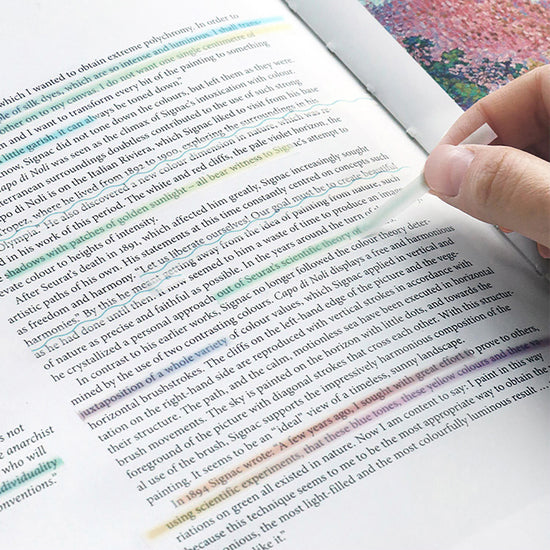 which I wanted to obtain extreme polychromy. In order to
of silk dyes, which are so intense and luminous. I shall trans-
on to my canvas I do not want one single centimetre of
and I want to transform every six of the painting to something
little garish, it can always be toned down."
Signac did not tone down the colours, but left them as they were.
Capo di Noli was seen as the climax of Signac's intoxication with colour.
surroundings doubtless contributed to the use of such strong
di Noli is on the Italian Riviera, which Signac liked to visit from his base
where he lived from 1892 to 1910, exploring the surroundings in his
"Olympia." He also discovered a new colour dimension in nature, which was to
in his work of this period. The white and red cliffs, the pale violet horizon, the
shadows with patches of golden sunlight – all bear witness to Signac's attempt to
colour to heights of intensity.
After Seurat's death in 1891, which affected him greatly, Signac increasingly sought
artistic paths of his own. His statements at this time constantly centred on concepts such
as freedom and harmony, "Let us liberate ourselves! Our goal must be to create beautiful
harmonies." By this he meant away from the idea of painting from nature, such
as he had done until then. It now seemed to him a waste of time to produce an image
of nature as precise and faithful as possible. In the years around the turn of
he crystallized a personal approach out of Seurat's scientific theory of
In contrast to his earlier works, Signac no longer followed the colour theory deter-
mined by the use of two contrasting colours. Capo di Noli displays a free and harmonious
juxtaposition of a whole variety of colour values, which Signac applied in vertical and
horizontal brushstrokes. The cliffs on the left-hand edge of the picture and the vege-
tation on the right-hand side are reproduced with vertical strokes in accordance with
their structure. The path, and the calm, motionless sea have been executed in horizontal
brush movements. The sky is painted on the horizon with little dots, and towards the
foreground of the picture with diagonal strokes that cross each other. With this structur-
al use of the brush, Signac supports the impressively harmonious composition of the
painting. It seems to be an "ideal" view of a timeless, sunny landscape.
In 1894 Signac wrote: "A few years ago, I sought with great effort to prove to others,
using scientific experiments, that these blue tones, these yellow colours and these
riations on green all existed in nature. Now I am content to say: I paint in this way
because this technique seems to me to be the most appropriate way to obtain the
the most light-filled and the most colourfully luminous result
like it."
is not
anarchist
who will
individuality
conventions."